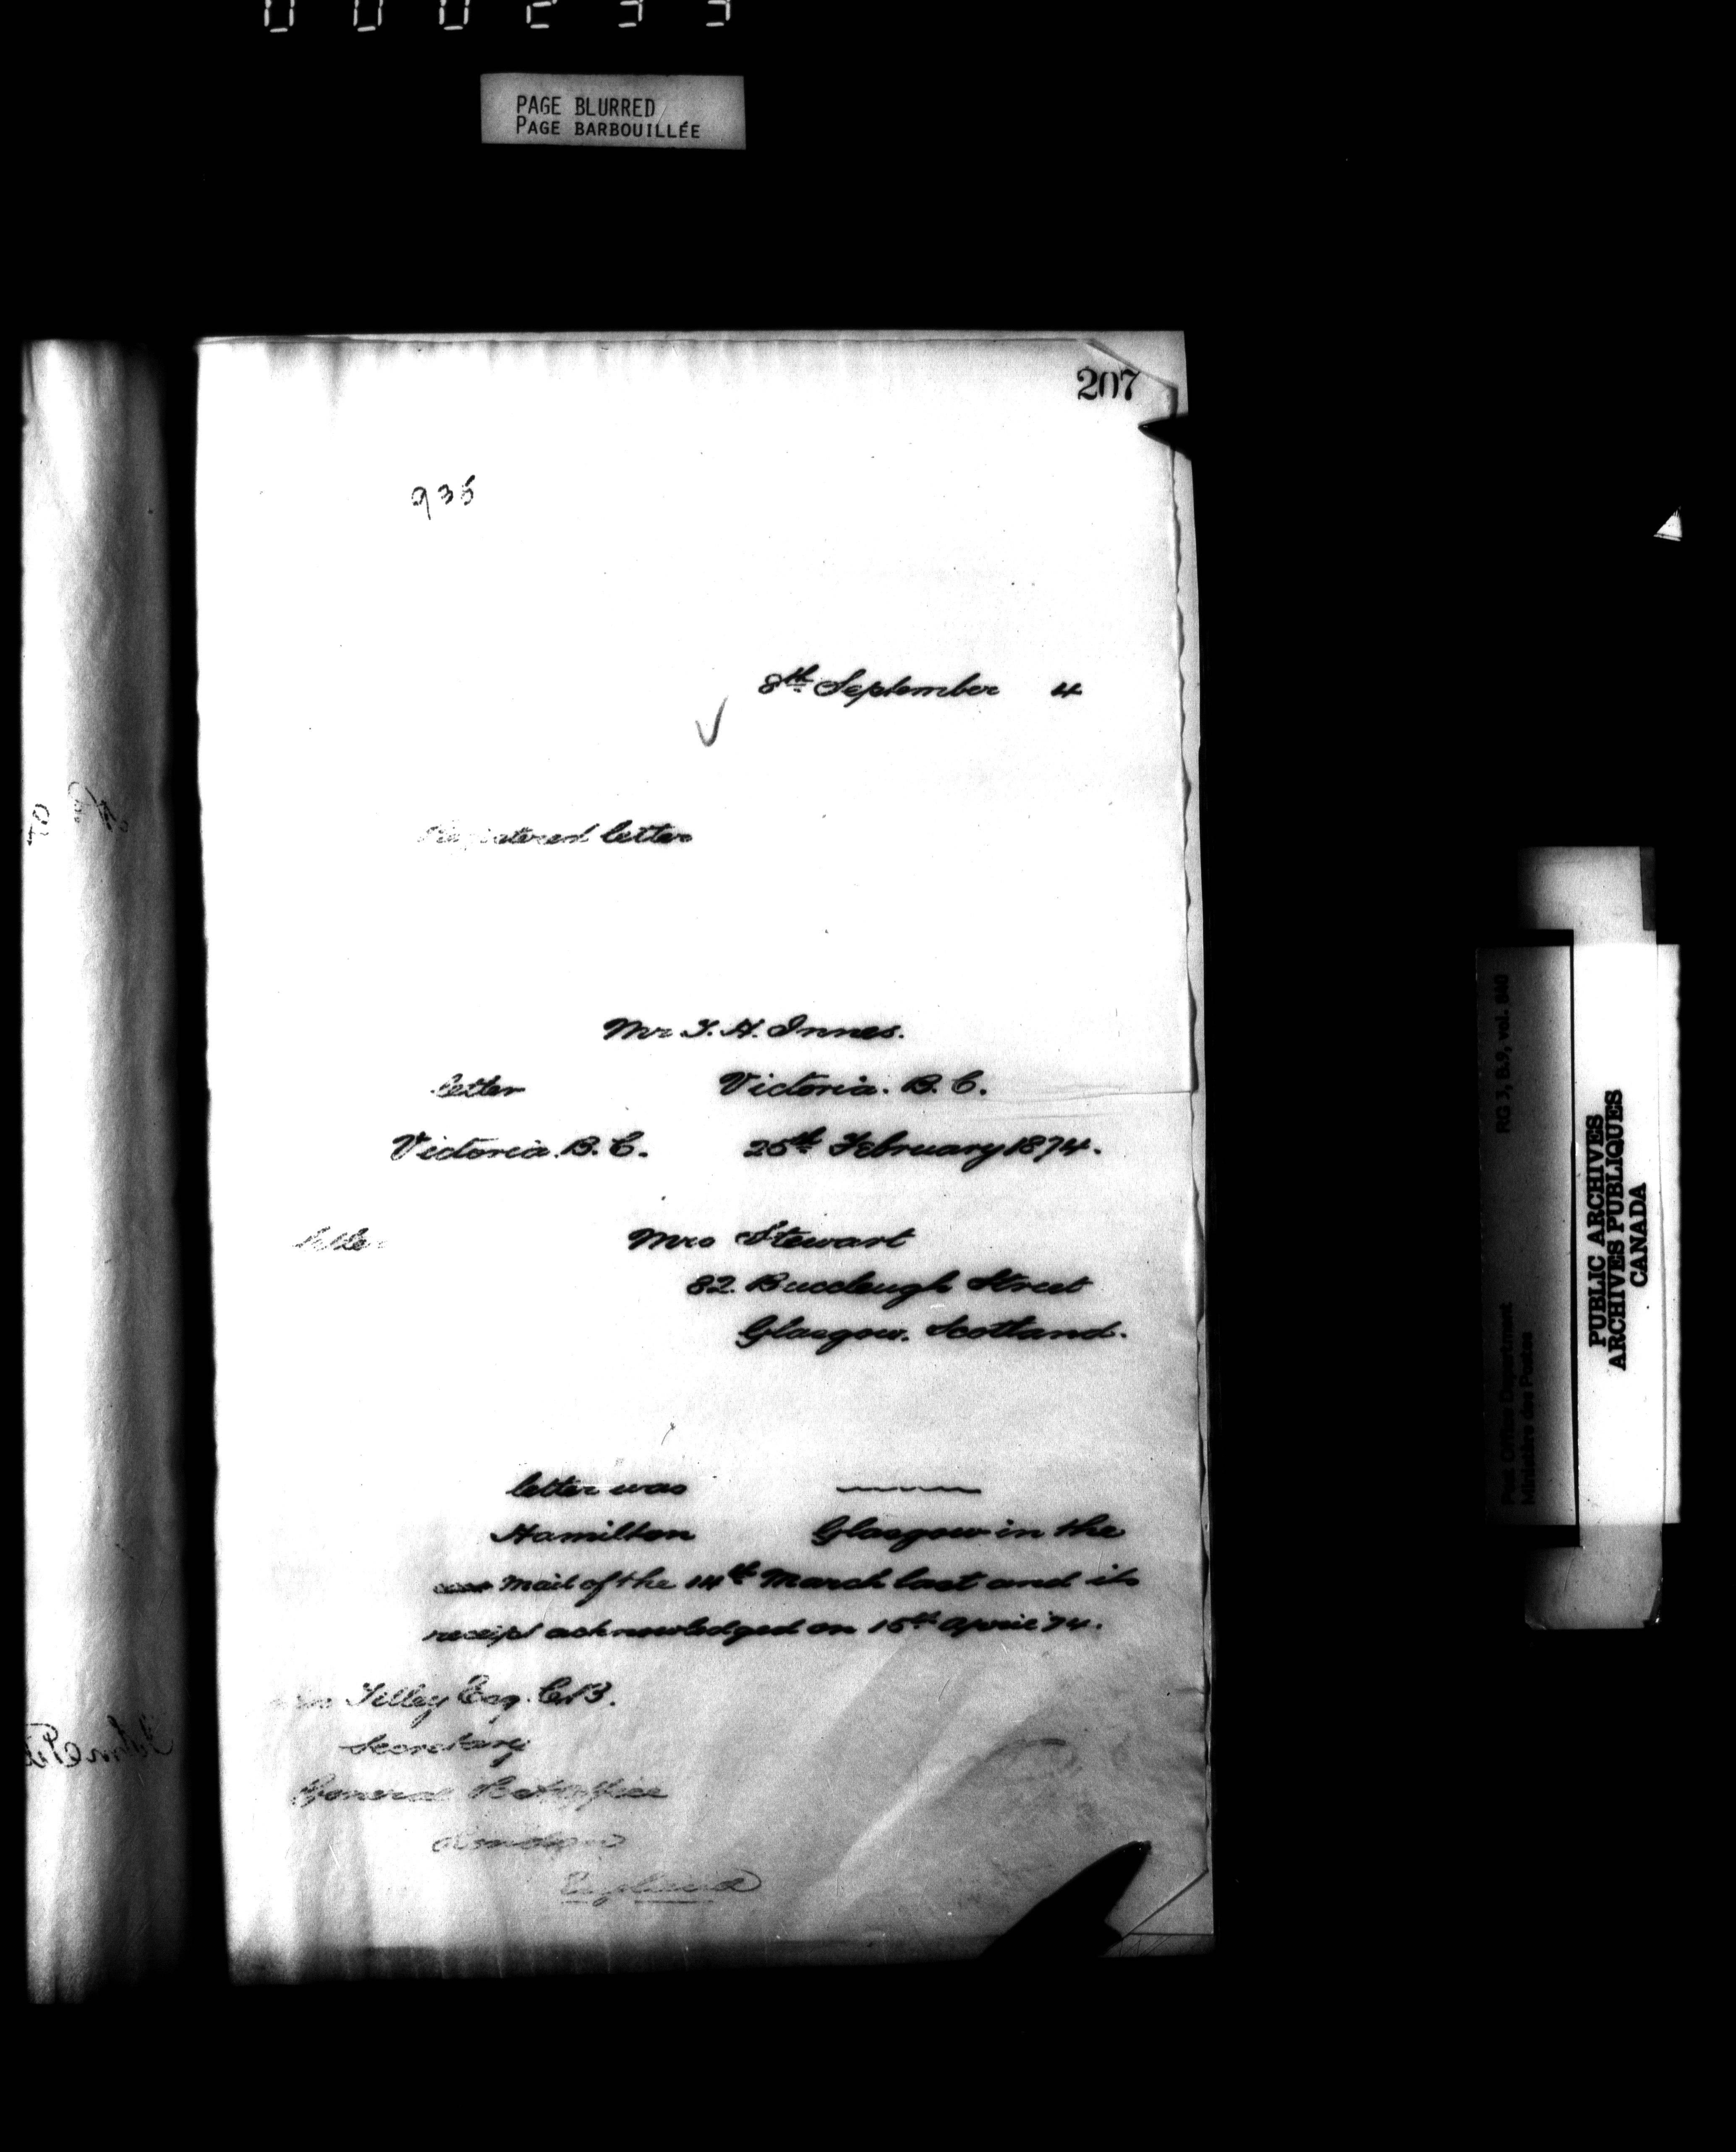 PAGE BLURRED
PAGE BARBOUILLÉE
207
935
8th September 4
Registered letter
Mr T. H. Innes.
letter Victoria. B. C.
Victoria. B. C. 25th February 1874.
letter Mrs Stewart
82. Buccleugh Street
Glasgow. Scotland.
letter was
Hamilton Glasgow in the
Mail of the 14th March last and its
receipt acknowledged on 15th April '74.
Tilley Esq. C.B.
Secretary
General Post Office
London
England
RG 3, B.9, vol. 840
Post Office Department
Ministère des Postes
PUBLIC ARCHIVES
ARCHIVES PUBLIQUES
CANADA